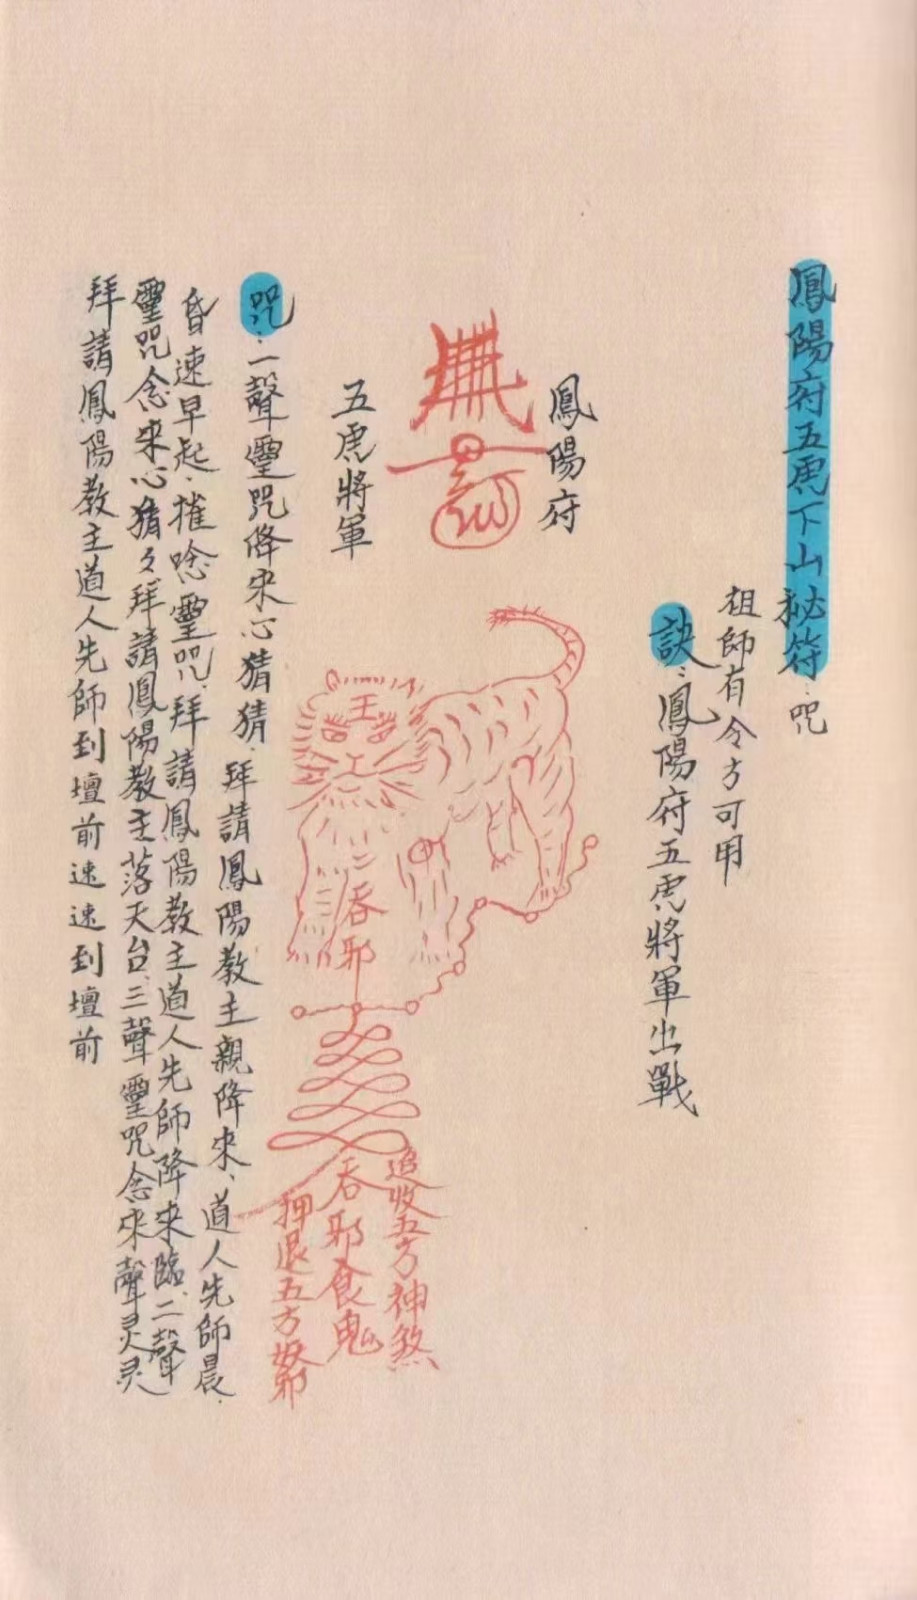 鳳陽府五虎下山祕符：咒
祖師有令方可用
訣：鳳陽府五虎將軍出戰
鳳陽府
五虎將軍
王
吞邪
追收五方神煞
吞邪食鬼
押退五方邪
咒：一聲靈咒降來心猜猜．拜請鳳陽教主親降來、道人先師晨．
昏速早起．摧唸靈咒．拜請鳳陽教主道人先師降來臨、二聲
靈咒念來心猜々拜請鳳陽教主落天台、三聲靈咒念來聲灵灵
拜請鳳陽教主道人先師到壇前速速到壇前